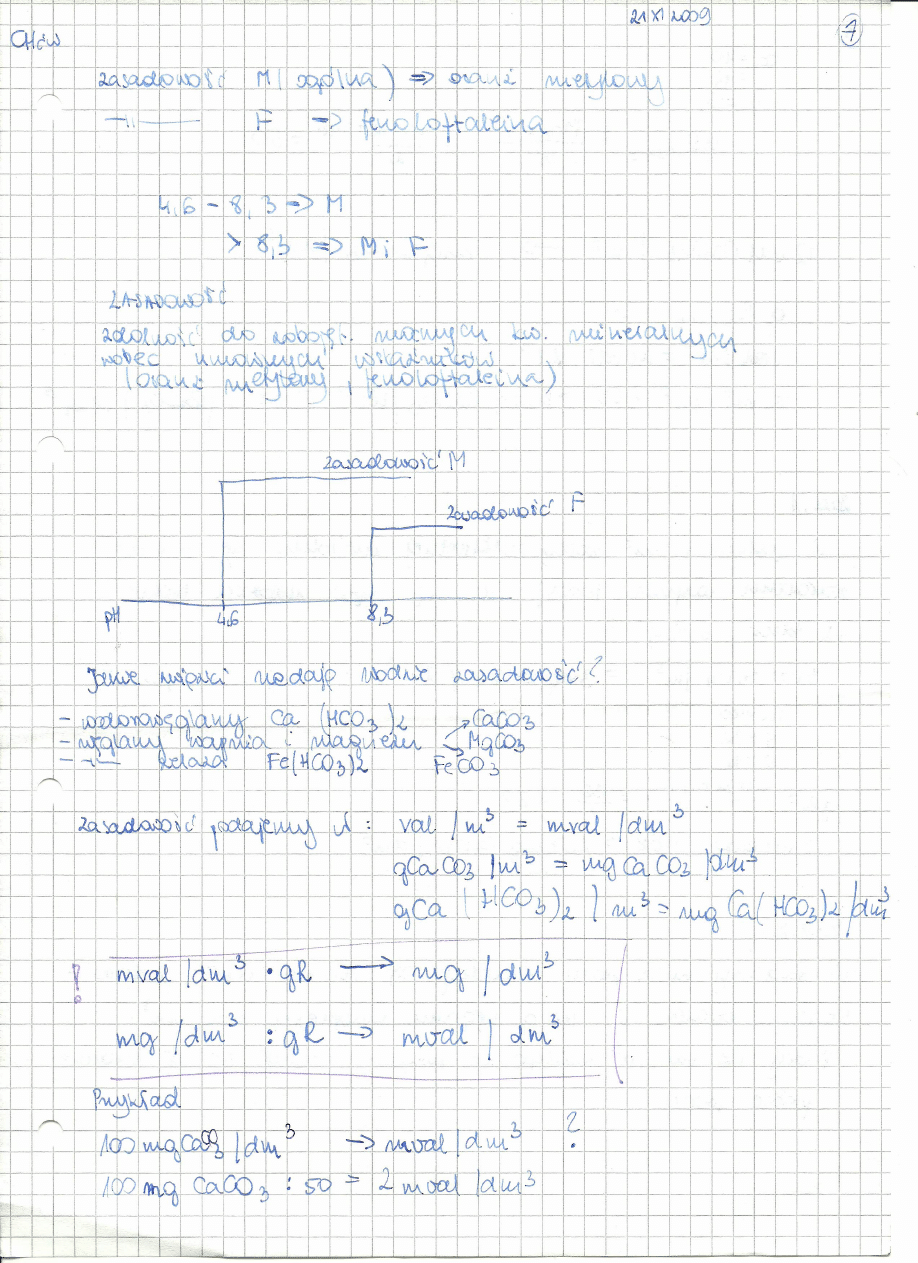 21 XI 2009
7
CHów
zasadowość M (ogólna) => oranż metylowy
—||— F => fenoloftaleina
4,6 - 8,3 => M
> 8,3 => M i F
ZASADOWOŚĆ
zdolność do zobojęt. mocnych kw. mineralnych
wobec umownych wskaźników
(oranż metylowy, fenoloftaleina)
zasadowość M
zasadowość F
pH 4,6 8,3
Jakie związki nadają wodzie zasadowość?
- wodorowęglany Ca (HCO3)2 CaCO3
- węglany wapnia i magnezu MgCO3
- —||— żelaza Fe(HCO3)2 FeCO3
Zasadowość podajemy w : val /m³ = mval /dm³
gCaCO3 /m³ = mg CaCO3 /dm³
gCa (HCO3)2 / m³ = mg Ca(HCO3)2 /dm³
! mval /dm³ • gR → mg / dm³
mg /dm³ : gR → mval / dm³
Przykład
100 mg CaCO3 /dm³ → mval /dm³ ?
100 mg CaCO3 : 50 = 2 mval /dm³